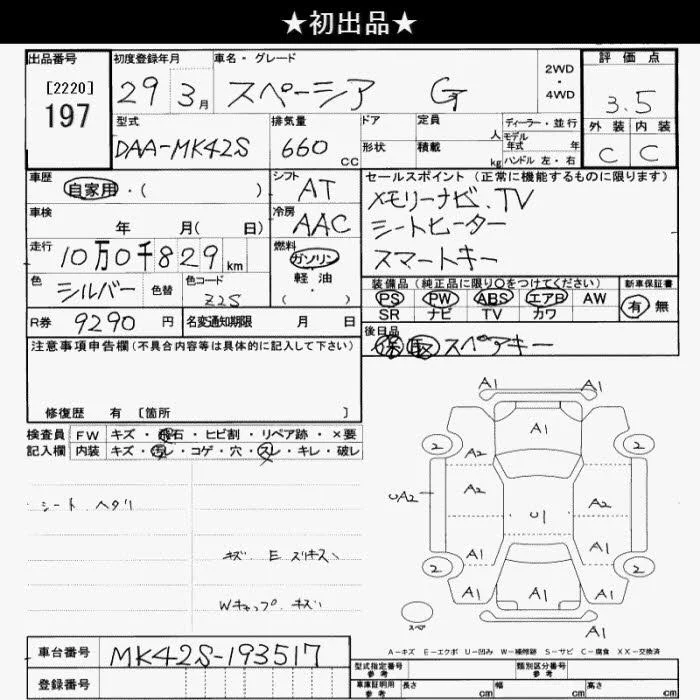 ★初出品★
出品番号
[2220]
197
初度登録年月
29 3月
車名・グレード
スペーシア G
2WD
・
4WD
評価点
3.5
外装 内装
C C
型式
DAA-MK42S
排気量
660 cc
ドア
形状
定員 人
積載 kg
ディーラー・並行
モデル年式 年
ハンドル 左・右
車歴
自家用・( )
シフト
AT
車検
年 月( 日)
冷房
AAC
走行
10万0千829km
燃料
ガソリン
軽油
( ・ )
色
シルバー
色替
色コード
Z2S
R券 9290円
名変通知期限 月 日
セールスポイント (正常に機能するものに限ります)
メモリーナビ.TV
シートヒーター
スマートキー
装備品 (純正品に限り○をつけてください)
PS PW ABS エアB AW
SR ナビ TV カワ
新車保証書
有 無
後日品
保 取 スペアキー
注意事項申告欄(不具合内容等は具体的に記入して下さい)
修復歴 有 [箇所 ]
検査員
記入欄
FW キズ・飛石・ヒビ割・リペア跡・×要
内装 キズ・汚レ・コゲ・穴・スレ・キレ・破レ
シート ヘタリ
Wキャップ キズ
A1 A1
A1
2 2
A2
A2 A2
UA2
U1
A1 A1
2 2
A1 A1 A1
A1
スペア
A-キズ E-エクボ U-凹み W-補修跡 S-サビ C-腐食 XX-交換済
車台番号 MK42S-193517
登録番号
型式指定番号
参考
類別区分番号
参考
車庫証明用
参考
長さ cm 幅 cm 高さ cm